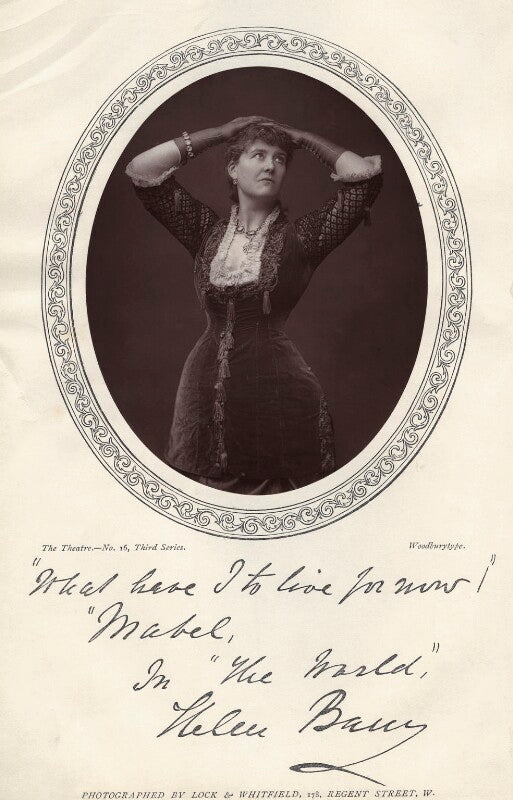 The Theatre.—No. 16, Third Series.
Woodburytype.
"What have I to live for now!"
"Mabel,
In "The World,"
Helen Barry
PHOTOGRAPHED BY LOCK & WHITFIELD, 178, REGENT STREET, W.